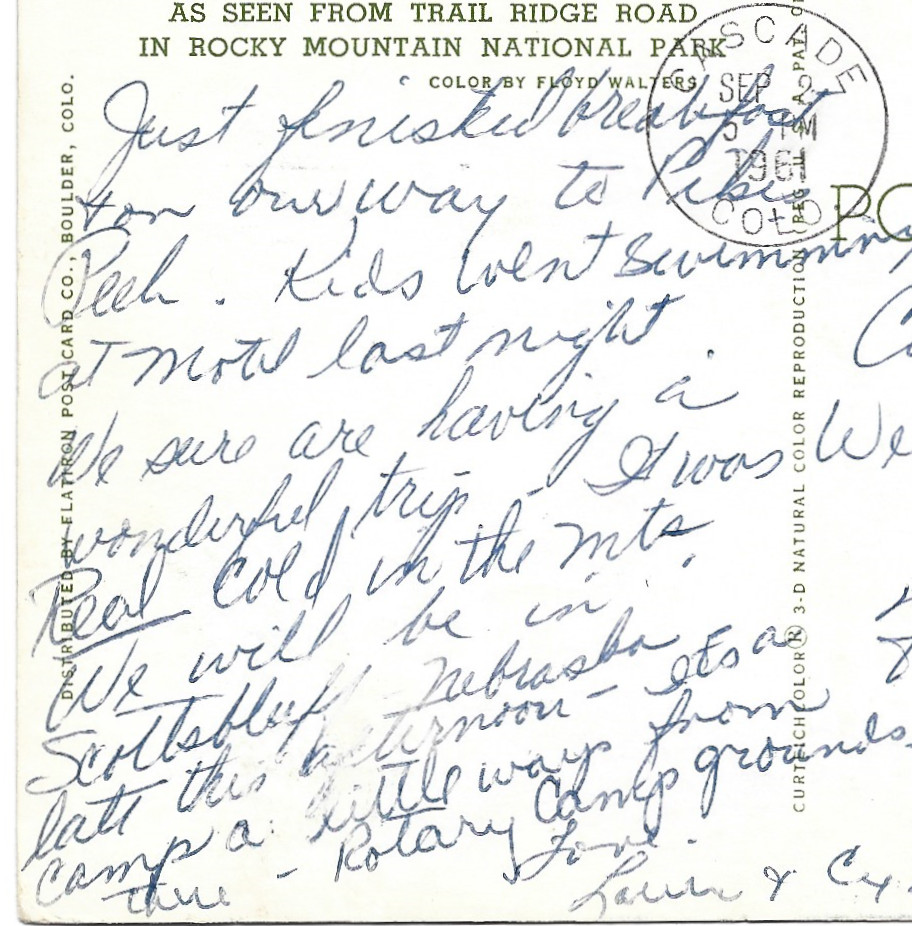 AS SEEN FROM TRAIL RIDGE ROAD
IN ROCKY MOUNTAIN NATIONAL PARK
COLOR BY FLOYD WALTERS
CASCADE
SEP 2
5 PM
1961
COLO.
PO
Just finished breakfast
+ on our way to
Peek. Kids went swimming
at Motel last night
We sure are having a
wonderful trip - It was
Real cold in the mts
We will be in
Scottsbluff Nebraska
late this afternoon - Its a
camp a little ways from
there - Rotary Camp grounds.
Love.
& Cy
We
DISTRIBUTED BY FLATIRON POST CARD CO., BOULDER, COLO.
CURTEICHCOLOR ® 3-D NATURAL COLOR REPRODUCTION (REG'D U.S.A. PAT. O